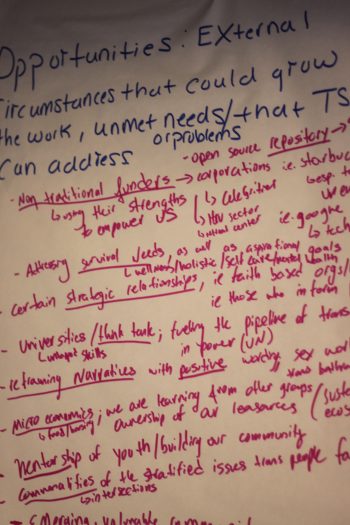 Opportunities: External
circumstances that could grow
the work, unmet needs/that TS
or problems
can address
- open source repository →
- Non traditional funders → corporations i.e. starbuc
↳ using their strengths
to empower us
↳ celebrities
↳ HIV sector
i.e. google
↳ tech
- Addressing survival needs, as well as aspirational goals
↳ wellness/holistic/self care/mental health
- certain strategic relationships, ie faith based orgs/
ie those who inform
- Universities/think tank; fueling the pipeline of trans
in power (UN)
- reframing Narratives with positive wording sex work
// trans bathroom
- Micro economics; we are learning from other groups/
↳ food/housing
ownership of our resources (suste
ecos
- Mentorship of youth/building our community
- Commonalities of the stratified issues trans people fa
↳ intersections
- Emerging, valuable